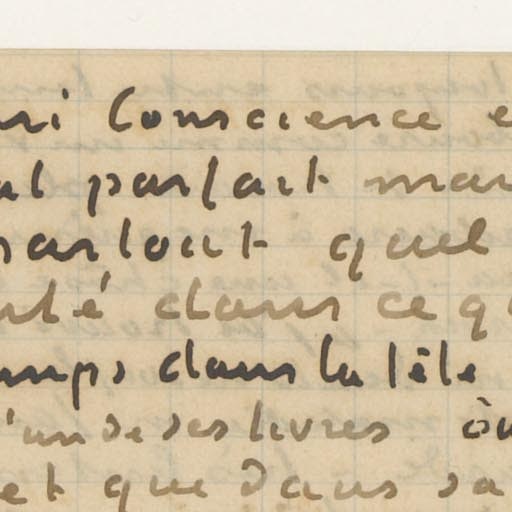 ri Conscience e
al parfait mar
partout quel
rté dans ce qu
emps dans la tête
d'un de ses livres où
et que dans sa